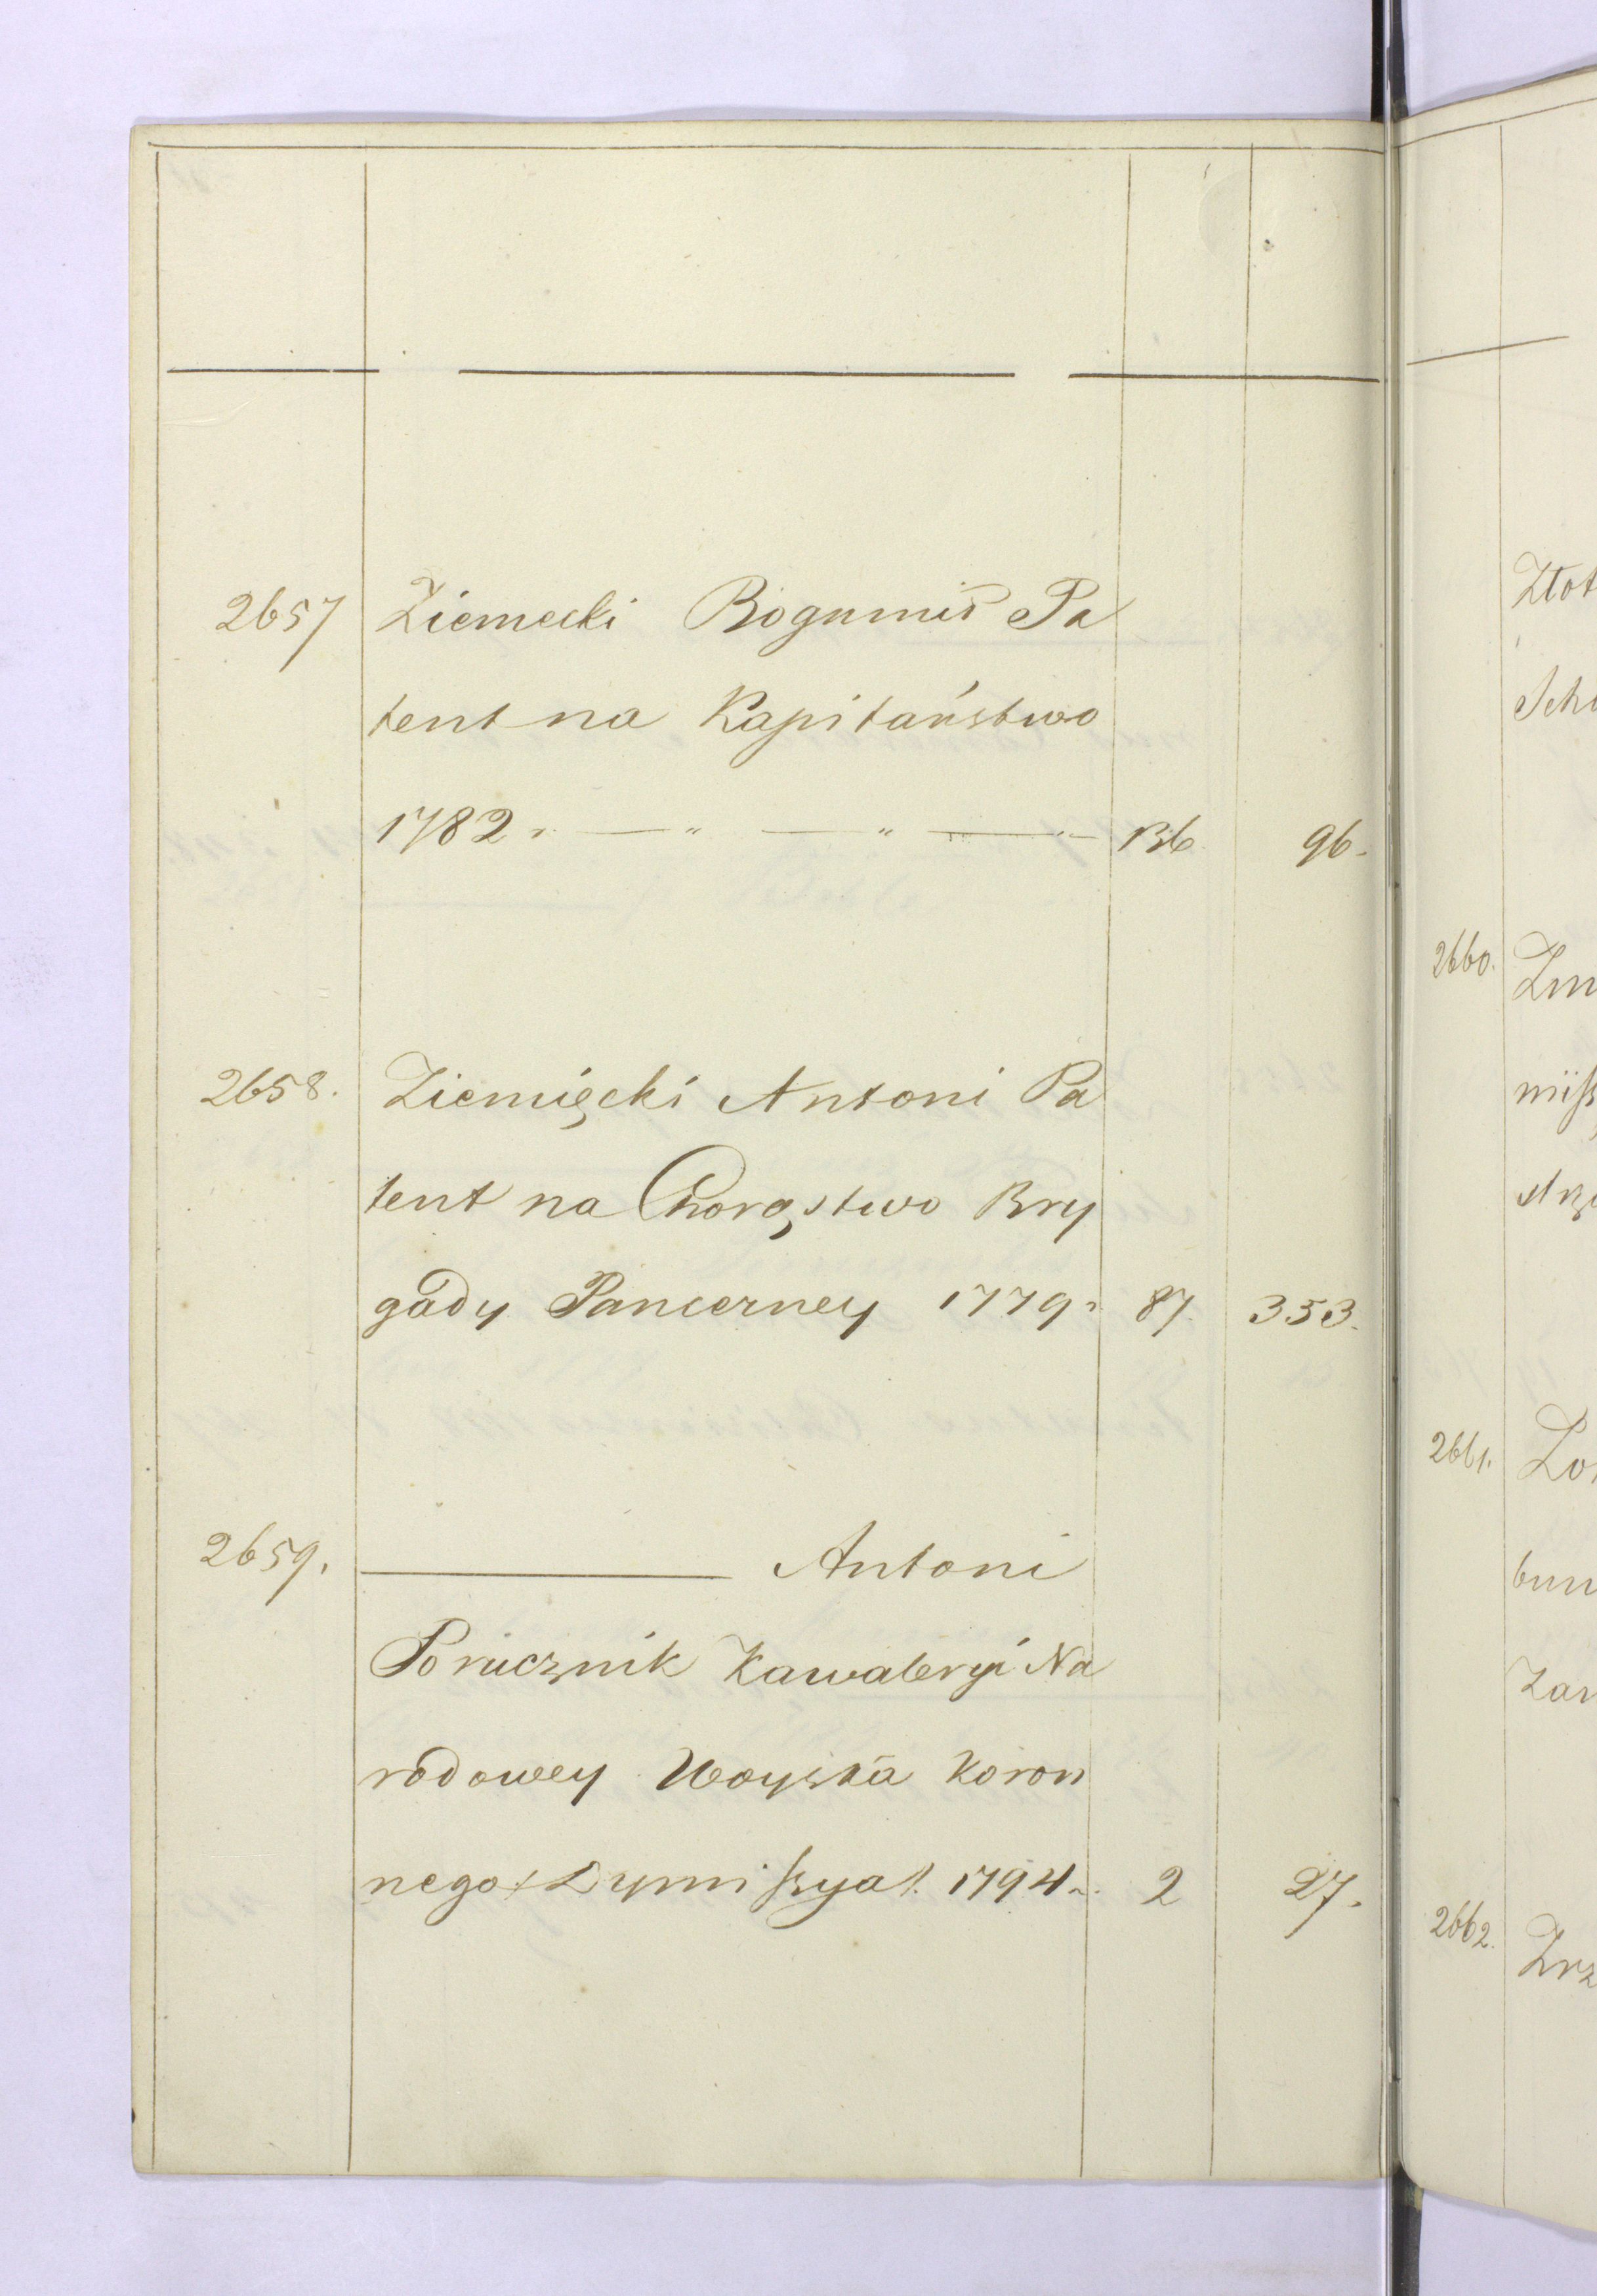 2657 Ziemecki Bogumił Pa
tent na Kapitaństwo
1782 „ — „ — „ — „ — 96.
2658. Ziemięcki Antoni Pa
tent na Chorąstwo Bry
gady Pancerney 1779 „ 87. 353.
2659. ——— Antoni
Porucznik Kawaleryi Na
rodowey Woyska Koron
nego /:Dymissya:/ 1794 „ 2 27.
Złot
2660.
2661.
2662.